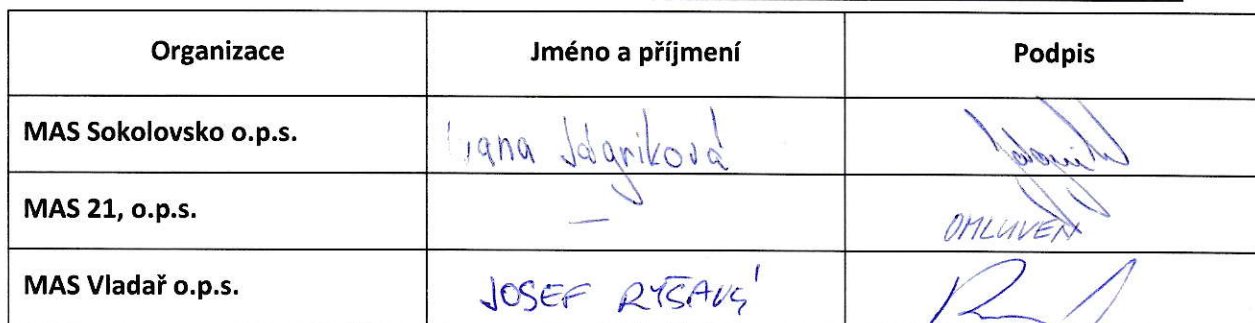 Organizace Jméno a příjmení Podpis
MAS Sokolovsko o.p.s. Ivana Jágriková
MAS 21, o.p.s. — OMLUVEN
MAS Vladař o.p.s. JOSEF RYŠAVÝ